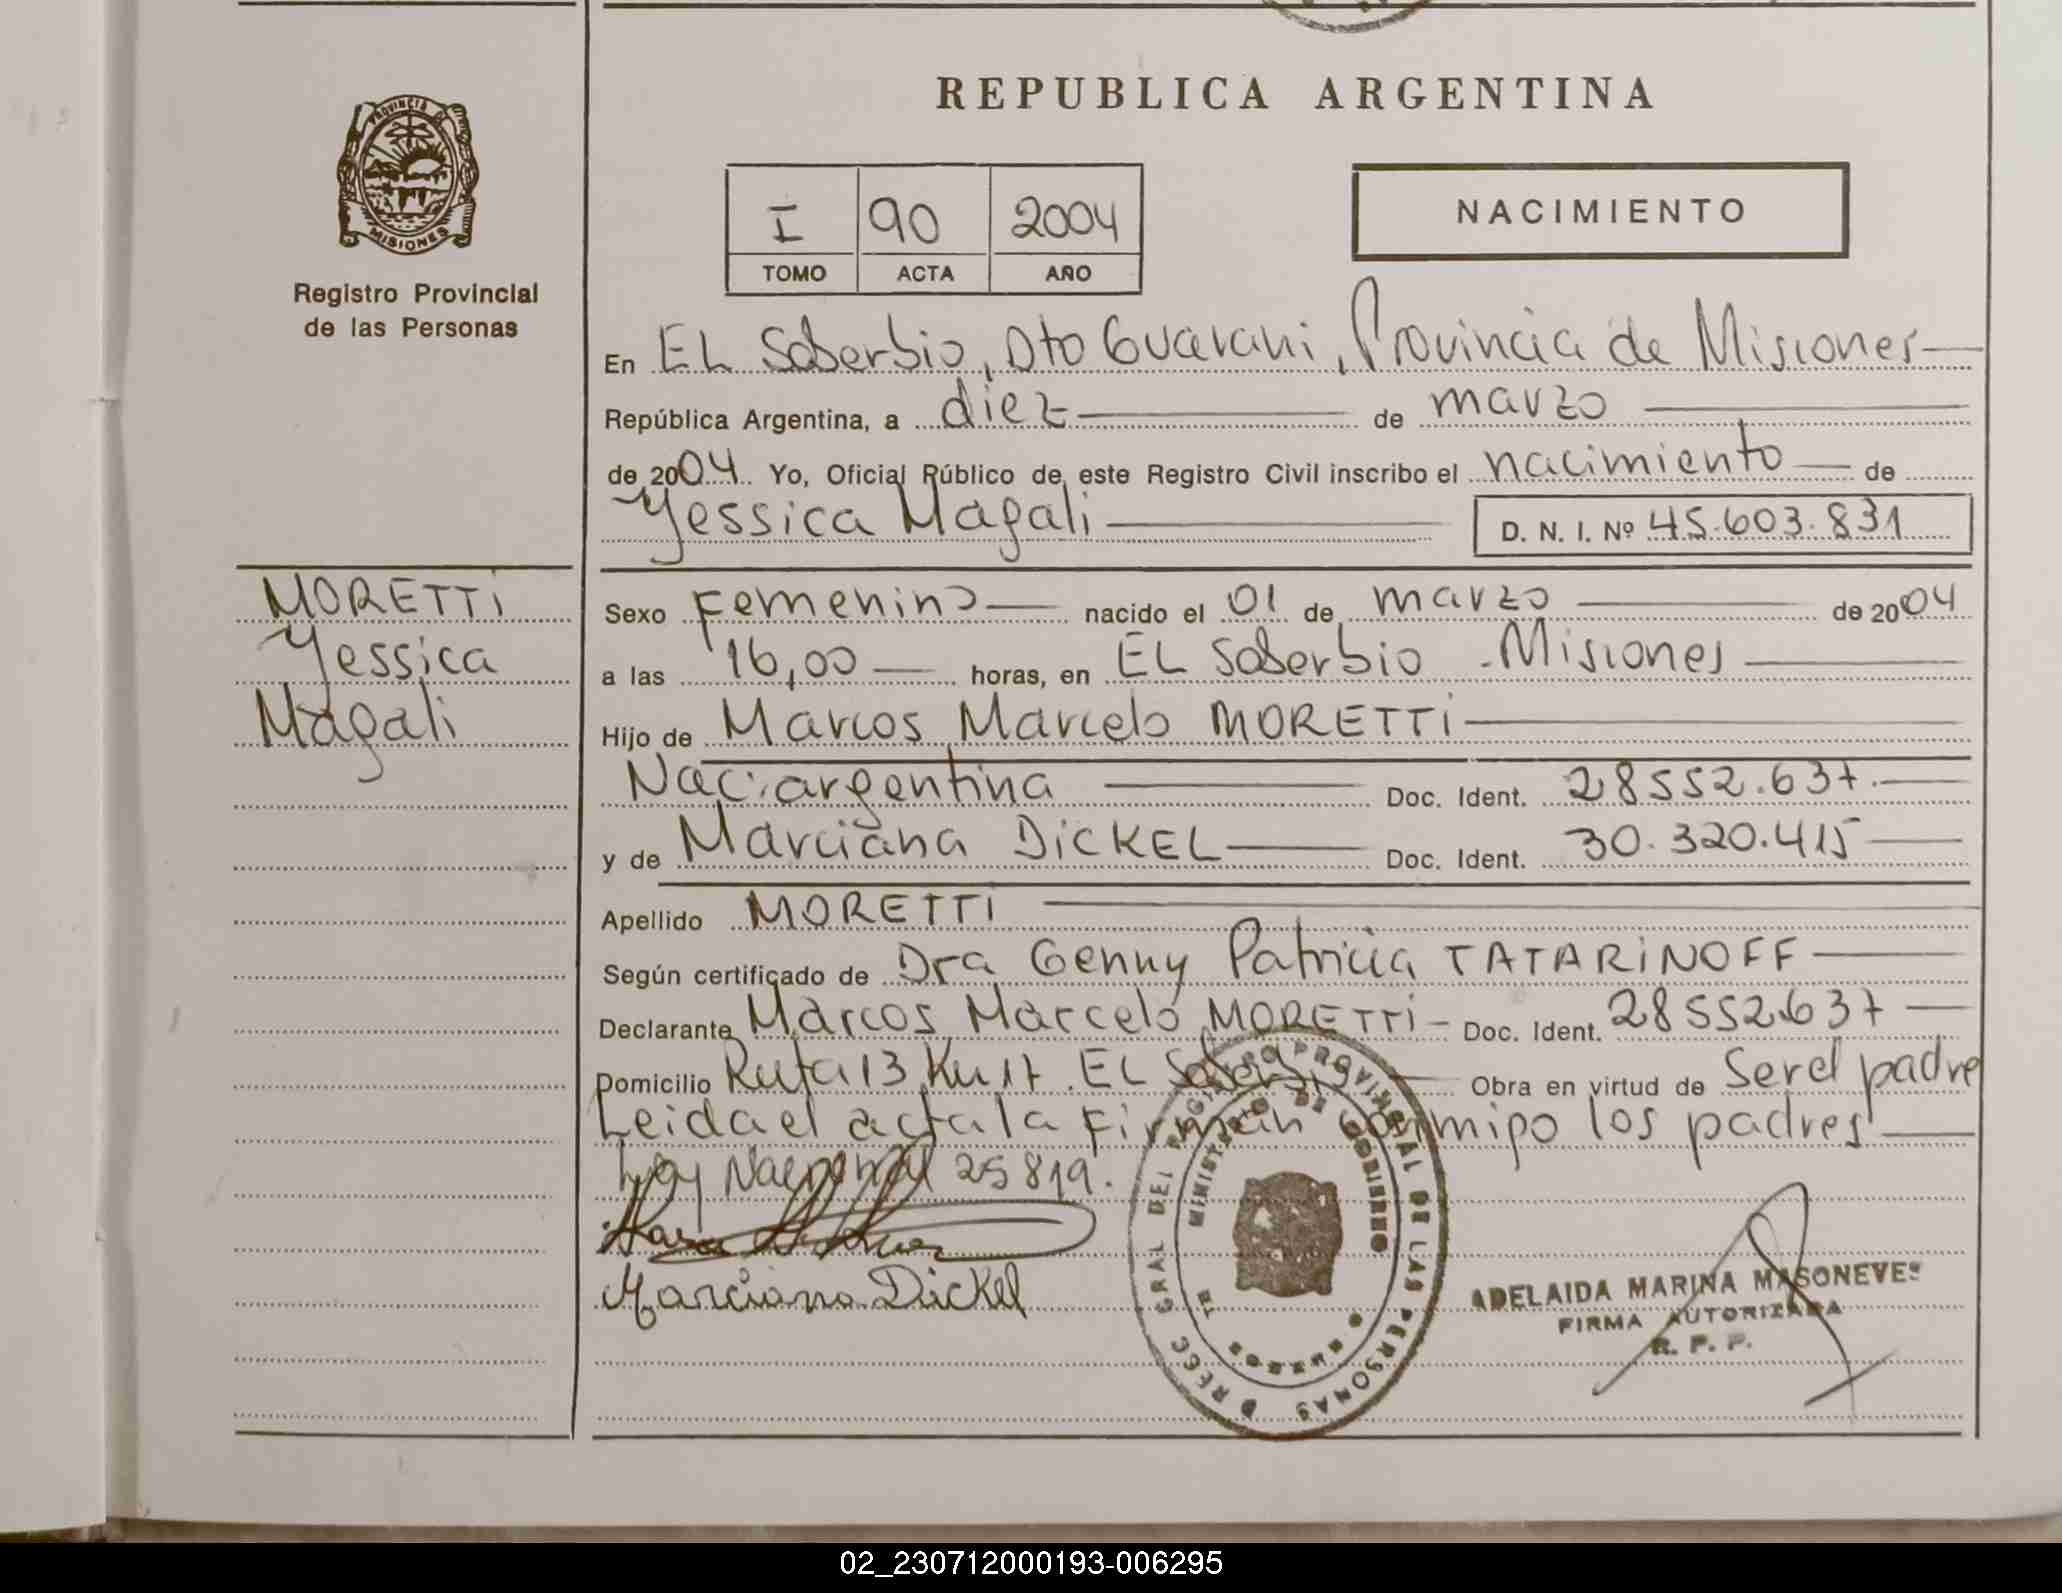 REPUBLICA ARGENTINA
PROVINCIA DE
MISIONES
Registro Provincial
de las Personas
I 90 2004
TOMO ACTA AÑO
NACIMIENTO
En EL Soberbio, Dto Guarani, Provincia de Misiones
República Argentina, a diez de marzo
de 2004 Yo, Oficial Público de este Registro Civil inscribo el nacimiento de
Yessica Magali
D. N. I. Nº 45.603.831
MORETTI
Yessica
Magali
Sexo Femenino nacido el 01 de marzo de 2004
a las 16,00 horas, en EL Soberbio - Misiones
Hijo de Marcos Marcelo MORETTI
Nac: argentina Doc. Ident. 28552.637.
y de Marciana DICKEL Doc. Ident. 30.320.415
Apellido MORETTI
Según certificado de Dra Genny Patricia TATARINOFF
Declarante Marcos Marcelo MORETTI - Doc. Ident. 28552.637
Domicilio Ruta 13 Km 17. EL Soberbio Obra en virtud de Ser el padre
Leida el acta la Firman conmigo los padres
Ley Nacional 25819.
Marciana Dickel
REGISTRO PROVINCIAL DE LAS PERSONAS
MINISTERIO DE GOBIERNO
ADELAIDA MARINA MASONEVES
FIRMA AUTORIZADA
R. P. P.
02_230712000193-006295